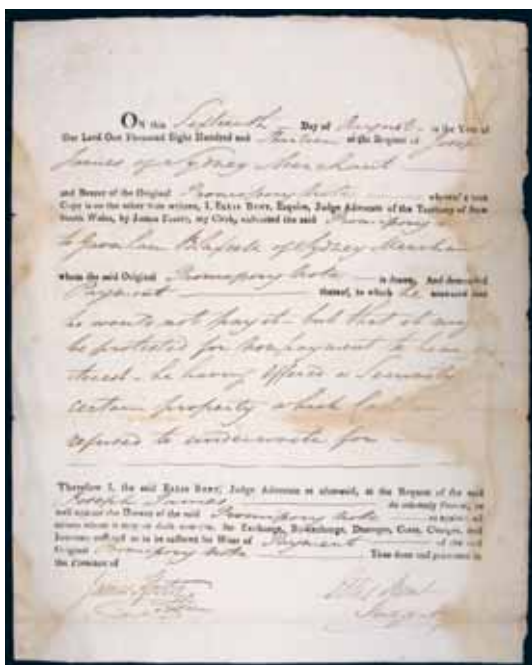 ON this Sixteenth Day of August in the Year of
Our Lord One Thousand Eight Hundred and Thirteen at the Request of Joseph
James of Sydney Merchant
and Bearer of the Original Promissory Note whereof a true
Copy is on the other side written, I, ELLIS BENT, Esquire, Judge Advocate of the Territory of New
South Wales, by James Foster, my Clerk, exhibited the said Promissory
to of Sydney Merchan
whom the said Original Promissory Note is drawn, And demanded
Payment thereof, to which he answered that
he would not pay it - but that it may
be protested for nonpayment to bear
- he having offered a Security
certain property which
refused to underwrite for -
Therefore I, the said ELLIS BENT, Judge Advocate as aforesaid, at the Request of the said
Joseph James do solemnly Protest, as
well against the Drawer of the said Promissory Note as against all
others whom it may or doth concern, for Exchange, Re-exchange, Damages, Costs, Charges, and
Interest suffered or to be suffered for Want of Payment of the said
Original Promissory Note Thus done and protested in
the Presence of
James Foster Ellis Bent